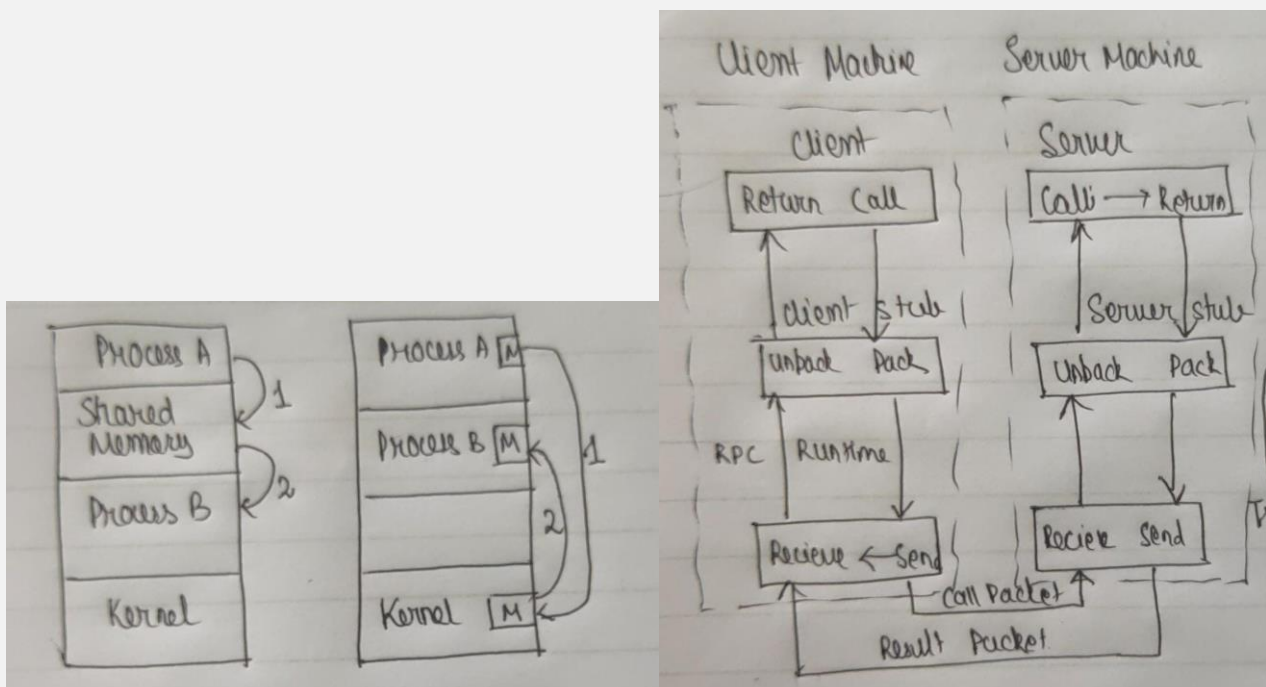 Process A
Shared
Memory
Process B
Kernel
1
2
Process A M
Process B M
Kernel M
1
2
Client Machine
Server Machine
Client
Return Call
Client Stub
Unback Pack
RPC Runtime
Recieve ← Send
Server
Call → Return
Server Stub
Unback Pack
Recieve Send
Call Packet
Result Packet